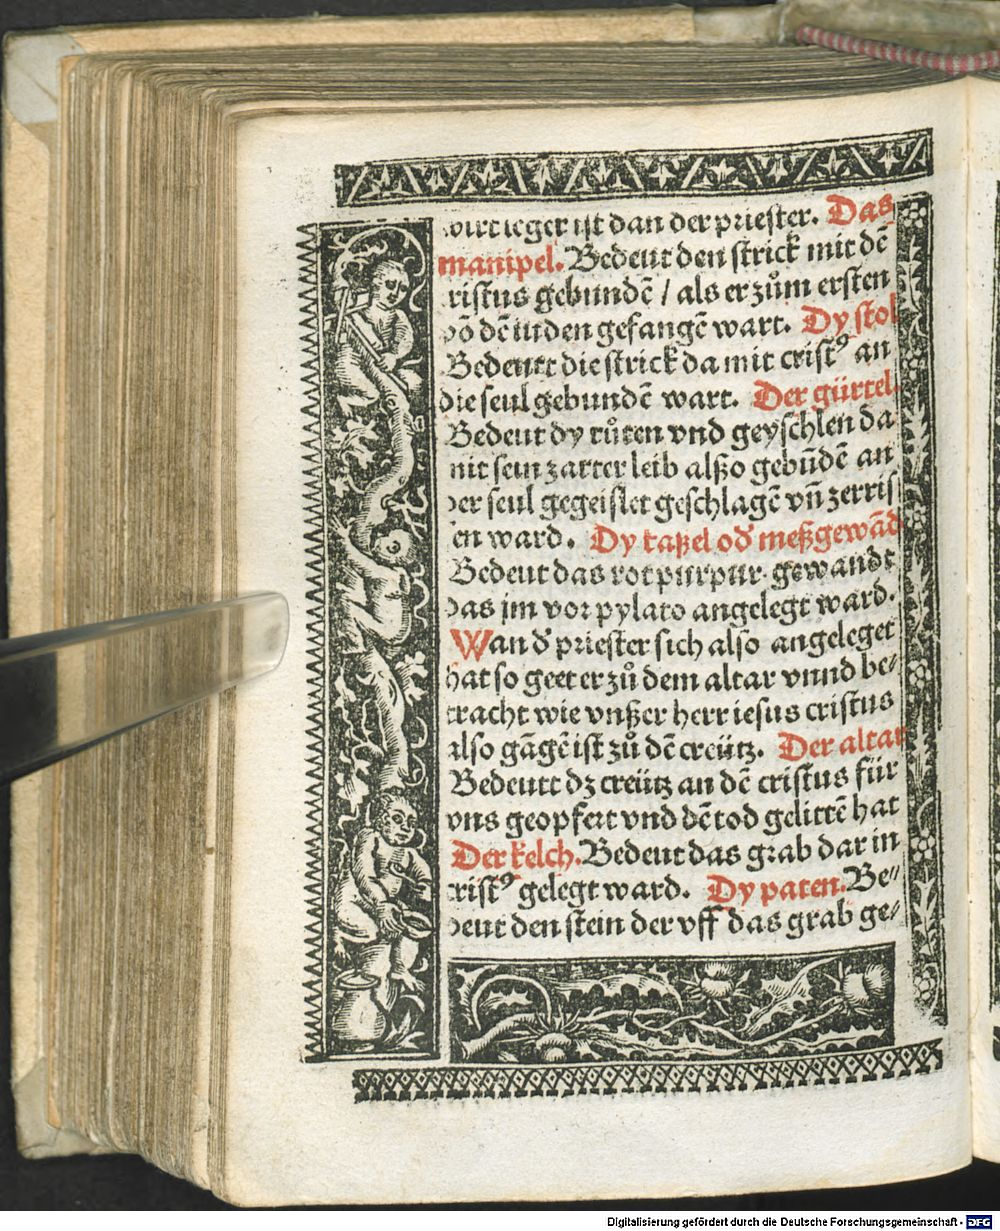 wirt ieger ist dan der priester. Das
manipel. Bedeut den strick mit dē
cristus gebundē / als er zům ersten
vō dē iuden gefangē wart. Dy stol
Bedeutt die strick da mit cristꝰ an
die seul gebundē wart. Der gürtel.
Bedeut dy růten vnd geyschlen da
mit sein zarter leib alßo gebūdē an
der seul gegeislet geschlagē vn̄ zerris
sen ward. Dy taßel od̕ meßgewād
Bedeut das rot purpur gewandt
das jm vor pylato angelegt ward.
Wan d̕ priester sich also angeleget
hat so geet er zů dem altar vnnd be⸗
tracht wie vnßer herr iesus cristus
also gāgē ist zů dē creütz. Der altar
Bedeutt dz creütz an dē cristus für
vns geopfert vnd dē tod gelittē hat
Der kelch. Bedeut das grab dar in
cristꝰ gelegt ward. Dy paten. Be⸗
deut den stein der vff das grab ge⸗
Digitalisierung gefördert durch die Deutsche Forschungsgemeinschaft - DFG